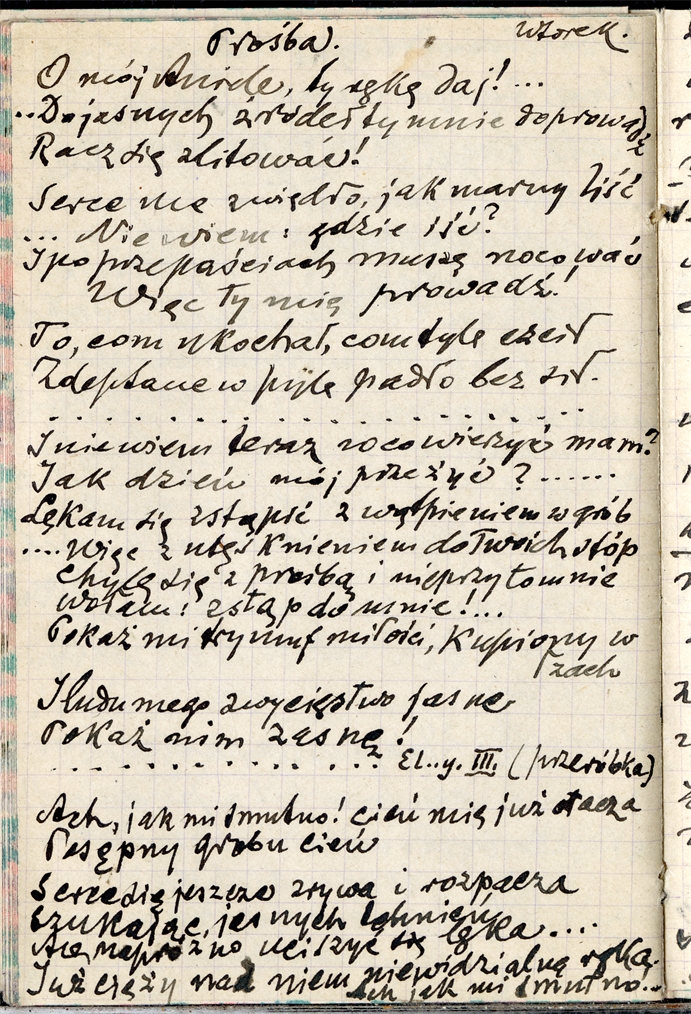 Prośba. Wtorek.
O mój Aniele, ty rękę daj!...
..Do jasnych źródeł ty mnie doprowadź
Racz się zlitować!
Serce me zwiędło, jak marny liść
... Nie wiem: gdzie iść?
I po przepaściach muszę nocować
Więc Ty mię prowadź!
To, com ukochał, com tyle czcił
Zdeptane w pyle padło bez sił.
. . . . . . . . . . . . . . . . . .
I nie wiem teraz w co wierzyć mam?
Jak dzień mój przeżyć?......
Lękam się zstąpić z wątpieniem w grób
....Więc z utęsknieniem do Twoich stóp
chylę się z prośbą i nieprzytomnie
wołam: zstąp do mnie!...
Pokaż mi tryumf miłości, kupiony w
łzach
I ludu mego zwycięstwo jasne
Pokaż nim zasnę!
. . . . . . . . . . . El..y. III. (przeróbka)
Ach, jak mi smutno! cień mię już otacza
Posępny grobu cień
Serce się jeszcze zrywa i rozpacza
Szukając, jasnych tchnień
Ale napróżno uciszyć się lęka....
Już cięży nad niem niewidzialna ręka.
Ach jak mi smutno...